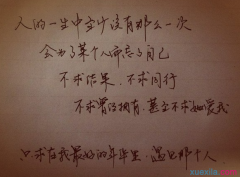 人的一生中至少有那么一次
会为了某个人而忘了自己
不求结果 不求同行
不求曾经拥有 甚至不求她爱我
只求在我最好的年华里 遇见那个人
xuexila.com